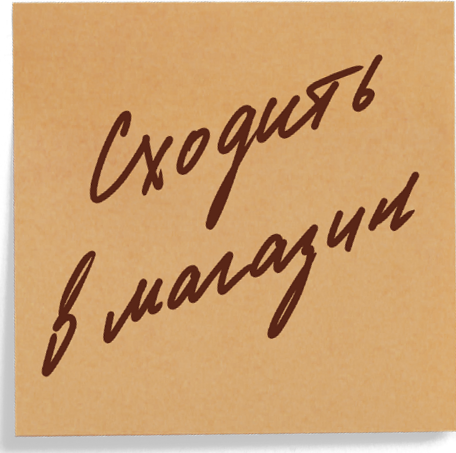 Сходить
в магазин